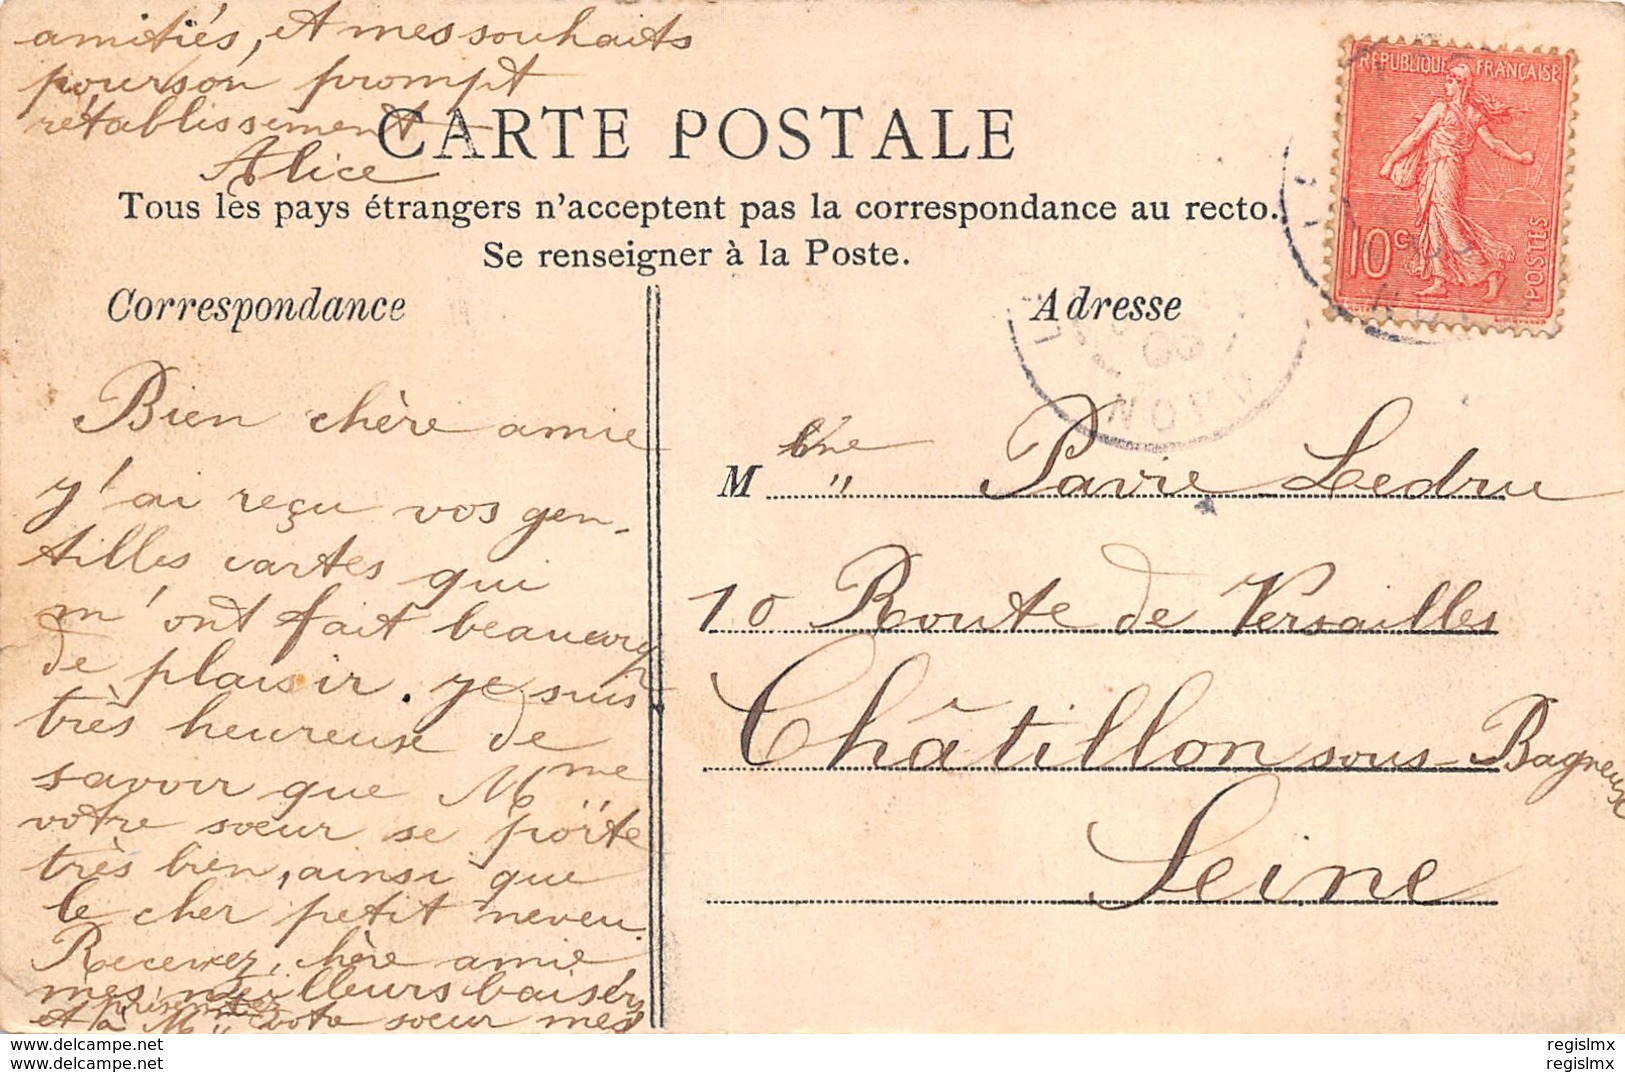 amitiés, et mes souhaits
pour son prompt
rétablissement
Alice
CARTE POSTALE
Tous les pays étrangers n'acceptent pas la correspondance au recto.
Se renseigner à la Poste.
Correspondance
Bien chère amie
j'ai reçu vos gen-
tilles cartes qui
m'ont fait beaucoup
de plaisir. je suis
très heureuse de
savoir que Mme
votre sœur se porte
très bien, ainsi que
le cher petit neveu.
Recevez, chère amie,
mes meilleurs baisers
présentez
et à M votre sœur mes
RÉPUBLIQUE FRANÇAISE
10c
POSTES
NORD
Adresse
M lle " Pavie Ledru
10 Route de Versailles
Châtillon sous-Bagneux
Seine
regislmx
regislmx